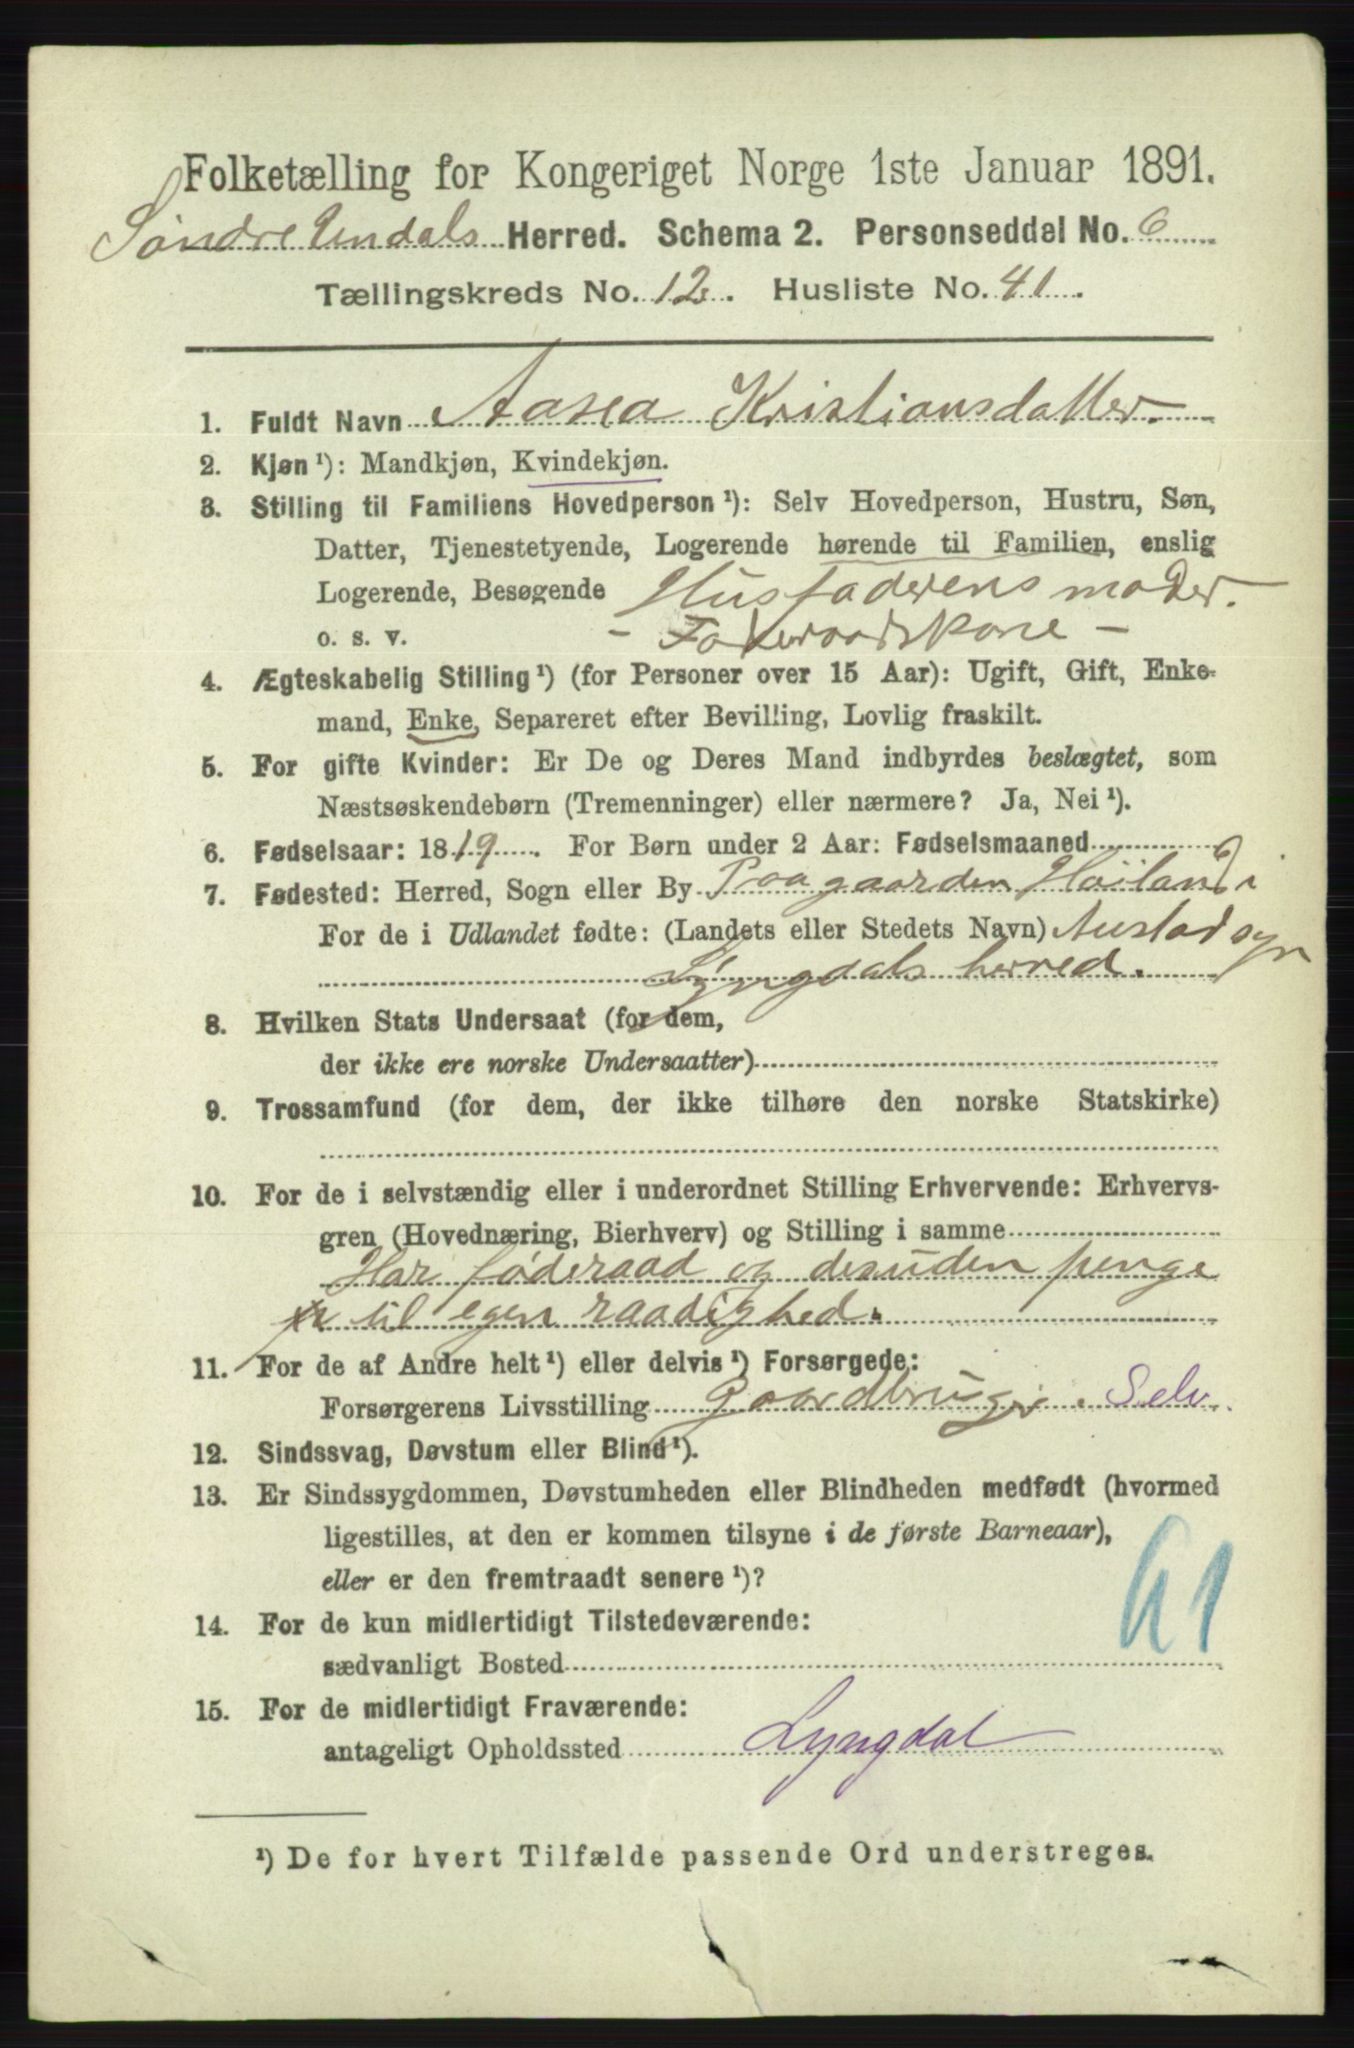 Folketælling for Kongeriget Norge 1ste Januar 1891.
Søndre Undals Herred. Schema 2. Personseddel No. 6
Tællingskreds No. 12. Husliste No. 41.
1. Fuldt Navn Aasea Kristiansdatter.
2. Kjøn¹): Mandkjøn, Kvindekjøn.
3. Stilling til Familiens Hovedperson¹): Selv Hovedperson, Hustru, Søn,
Datter, Tjenestetyende, Logerende hørende til Familien, enslig
Logerende, Besøgende Husfaderens moder.
o. s. v. - Føderaadskone -
4. Ægteskabelig Stilling¹) (for Personer over 15 Aar): Ugift, Gift, Enke-
mand, Enke, Separeret efter Bevilling, Lovlig fraskilt.
5. For gifte Kvinder: Er De og Deres Mand indbyrdes beslægtet, som
Næstsøskendebørn (Tremenninger) eller nærmere? Ja, Nei¹).
6. Fødselsaar: 1819. For Børn under 2 Aar: Fødselsmaaned
7. Fødested: Herred, Sogn eller By Paa gaarden Høiland i
For de i Udlandet fødte: (Landets eller Stedets Navn) Austad sgn
Lyngdals herred.
8. Hvilken Stats Undersaat (for dem,
der ikke ere norske Undersaatter)
9. Trossamfund (for dem, der ikke tilhøre den norske Statskirke)
10. For de i selvstændig eller i underordnet Stilling Erhvervende: Erhvervs-
gren (Hovednæring, Bierhverv) og Stilling i samme
Har føderaad og desuden penge
til egen raadighed.
11. For de af Andre helt¹) eller delvis¹) Forsørgede:
Forsørgerens Livsstilling Gaardbruger. Selv.
12. Sindssvag, Døvstum eller Blind¹).
13. Er Sindssygdommen, Døvstumheden eller Blindheden medfødt (hvormed
ligestilles, at den er kommen tilsyne i de første Barneaar),
eller er den fremtraadt senere¹)?
41
14. For de kun midlertidigt Tilstedeværende:
sædvanligt Bosted
15. For de midlertidigt Fraværende:
antageligt Opholdssted Lyngdal
¹) De for hvert Tilfælde passende Ord understreges.